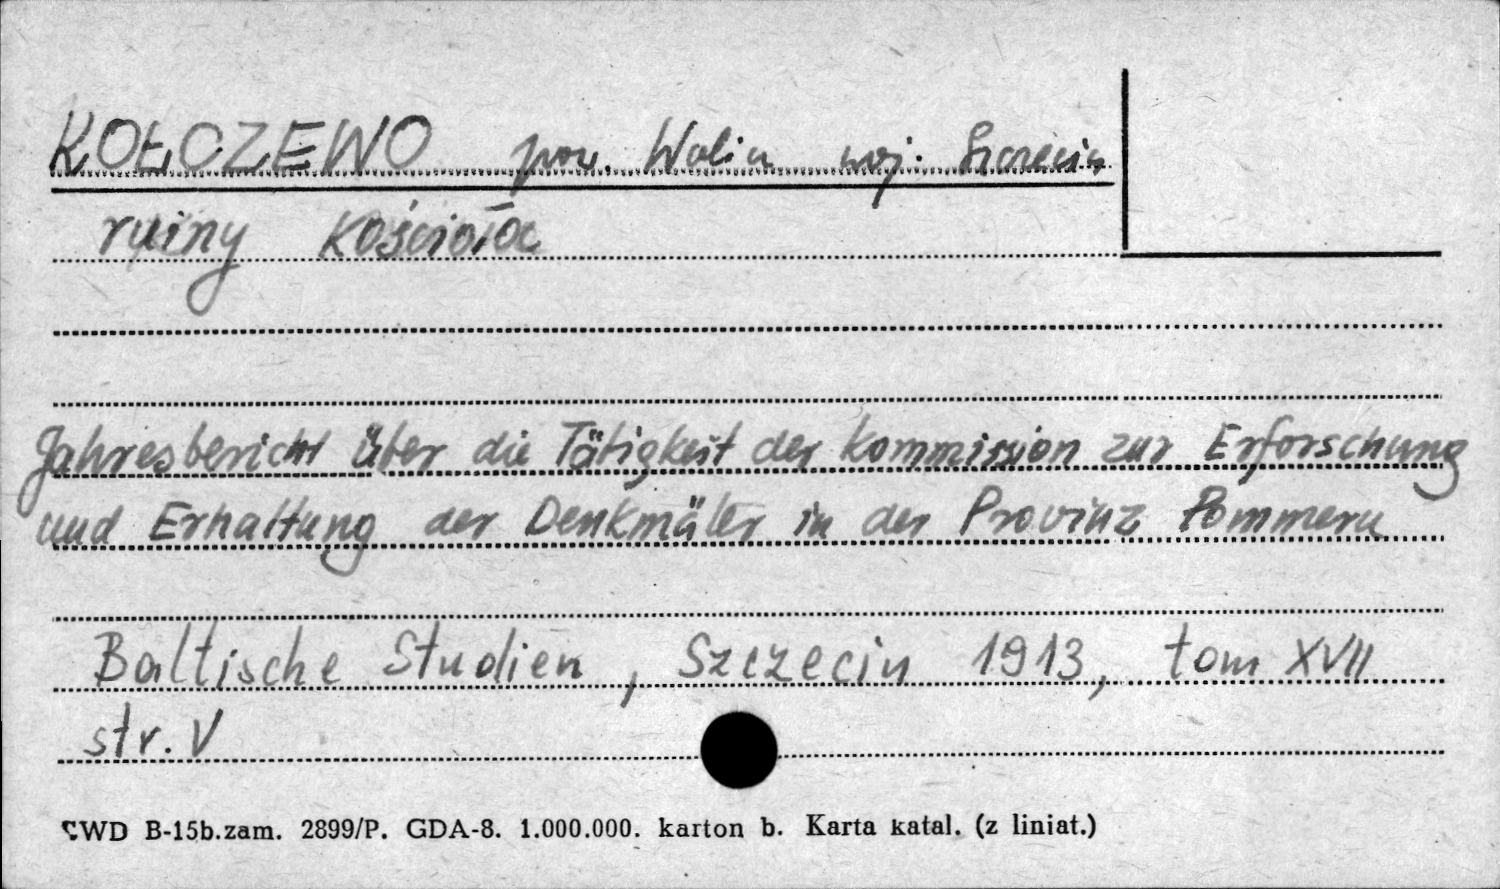 KOŁCZEWO pow. Wolin woj. Szczecin
ruiny kościoła
Jahresbericht über die Tätigkeit der Kommission zur Erforschung
und Erhaltung der Denkmäler in der Provinz Pommern
Baltische Studien, Szczecin 1913, tom XVII
str. V
CWD B-15b.zam. 2899/P. GDA-8. 1.000.000. karton b. Karta katal. (z liniat.)